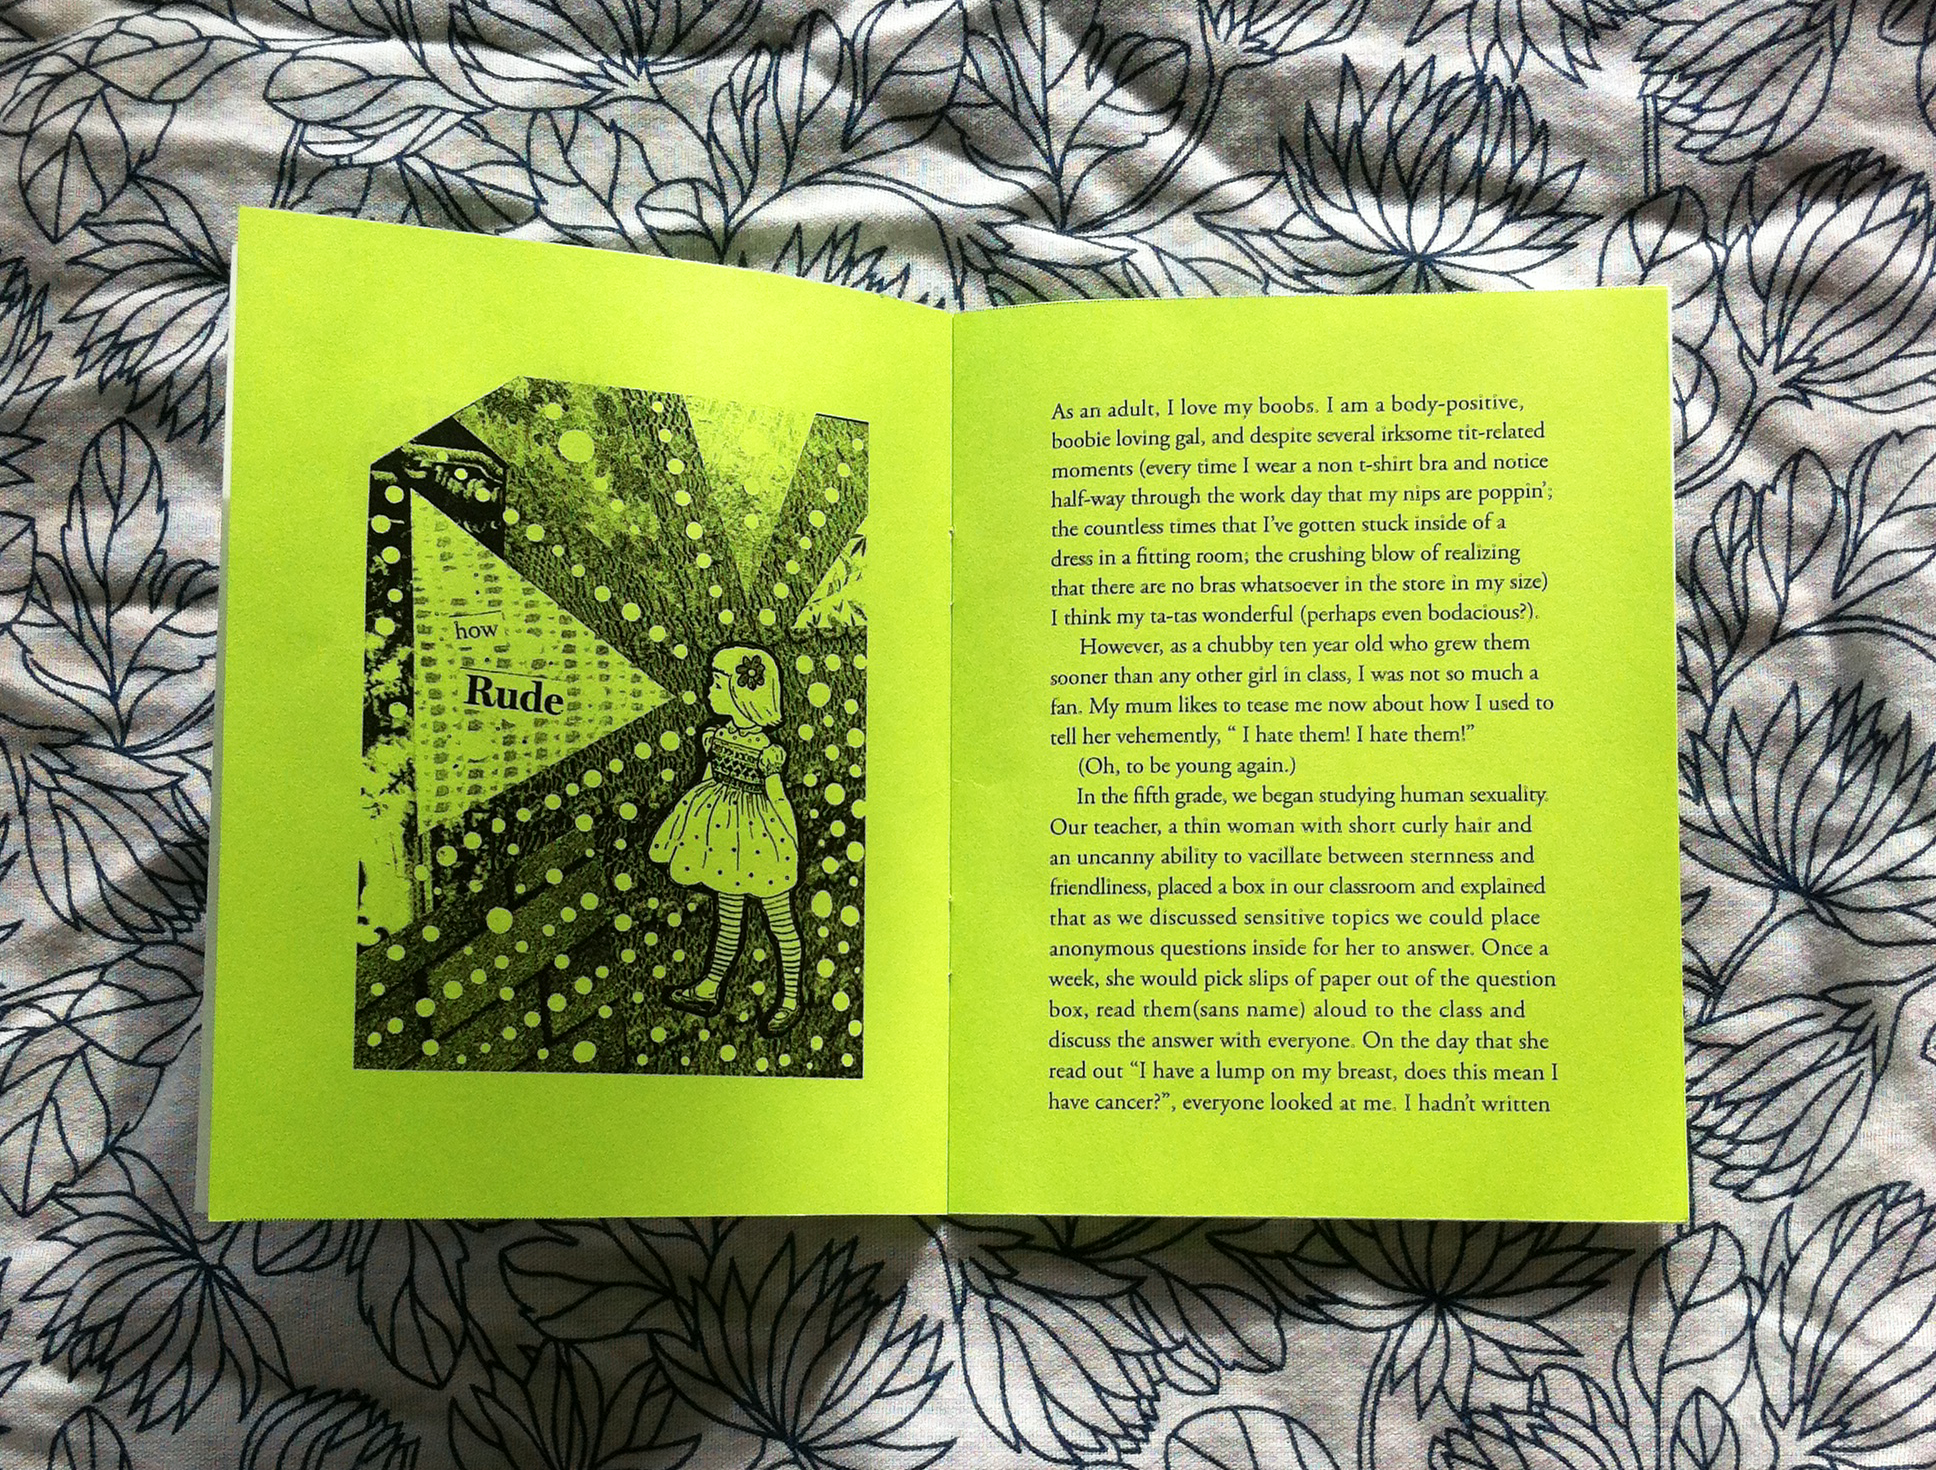 how
Rude
As an adult, I love my boobs. I am a body-positive,
boobie loving gal, and despite several irksome tit-related
moments (every time I wear a non t-shirt bra and notice
half-way through the work day that my nips are poppin';
the countless times that I've gotten stuck inside of a
dress in a fitting room; the crushing blow of realizing
that there are no bras whatsoever in the store in my size)
I think my ta-tas wonderful (perhaps even bodacious?).
However, as a chubby ten year old who grew them
sooner than any other girl in class, I was not so much a
fan. My mum likes to tease me now about how I used to
tell her vehemently, “ I hate them! I hate them!”
(Oh, to be young again.)
In the fifth grade, we began studying human sexuality.
Our teacher, a thin woman with short curly hair and
an uncanny ability to vacillate between sternness and
friendliness, placed a box in our classroom and explained
that as we discussed sensitive topics we could place
anonymous questions inside for her to answer. Once a
week, she would pick slips of paper out of the question
box, read them(sans name) aloud to the class and
discuss the answer with everyone. On the day that she
read out “I have a lump on my breast, does this mean I
have cancer?”, everyone looked at me. I hadn't written